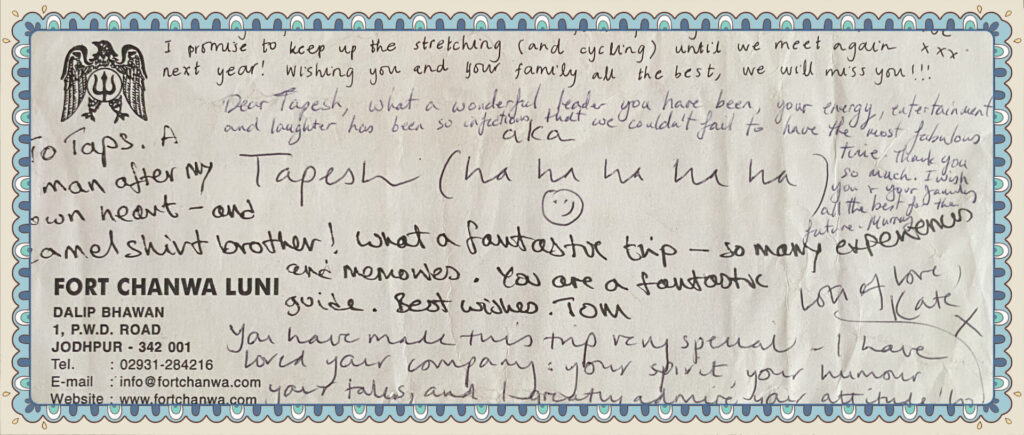 I promise to keep up the stretching (and cycling) until we meet again xxx.
next year! Wishing you and your family all the best, we will miss you!!!
Dear Tapesh, what a wonderful leader you have been, your energy, entertainment
and laughter has been so infectious, that we couldn't fail to have the most fabulous
time. Thank you
so much. I wish
you & your family
all the best for the
future. Murray
aka
Tapesh (ha ha ha ha ha)
To Taps. A
man after my
own heart - and
camel shirt brother! What a fantastic trip - so many experiences
and memories. You are a fantastic
guide. Best wishes. Tom
Lots of love,
Kate
X
FORT CHANWA LUNI
DALIP BHAWAN
1, P.W.D. ROAD
JODHPUR - 342 001
Tel. : 02931-284216
E-mail : info@fortchanwa.com
Website : www.fortchanwa.com
You have made this trip very special - I have
loved your company: your spirit, your humour
your tales, and I greatly admire your attitude